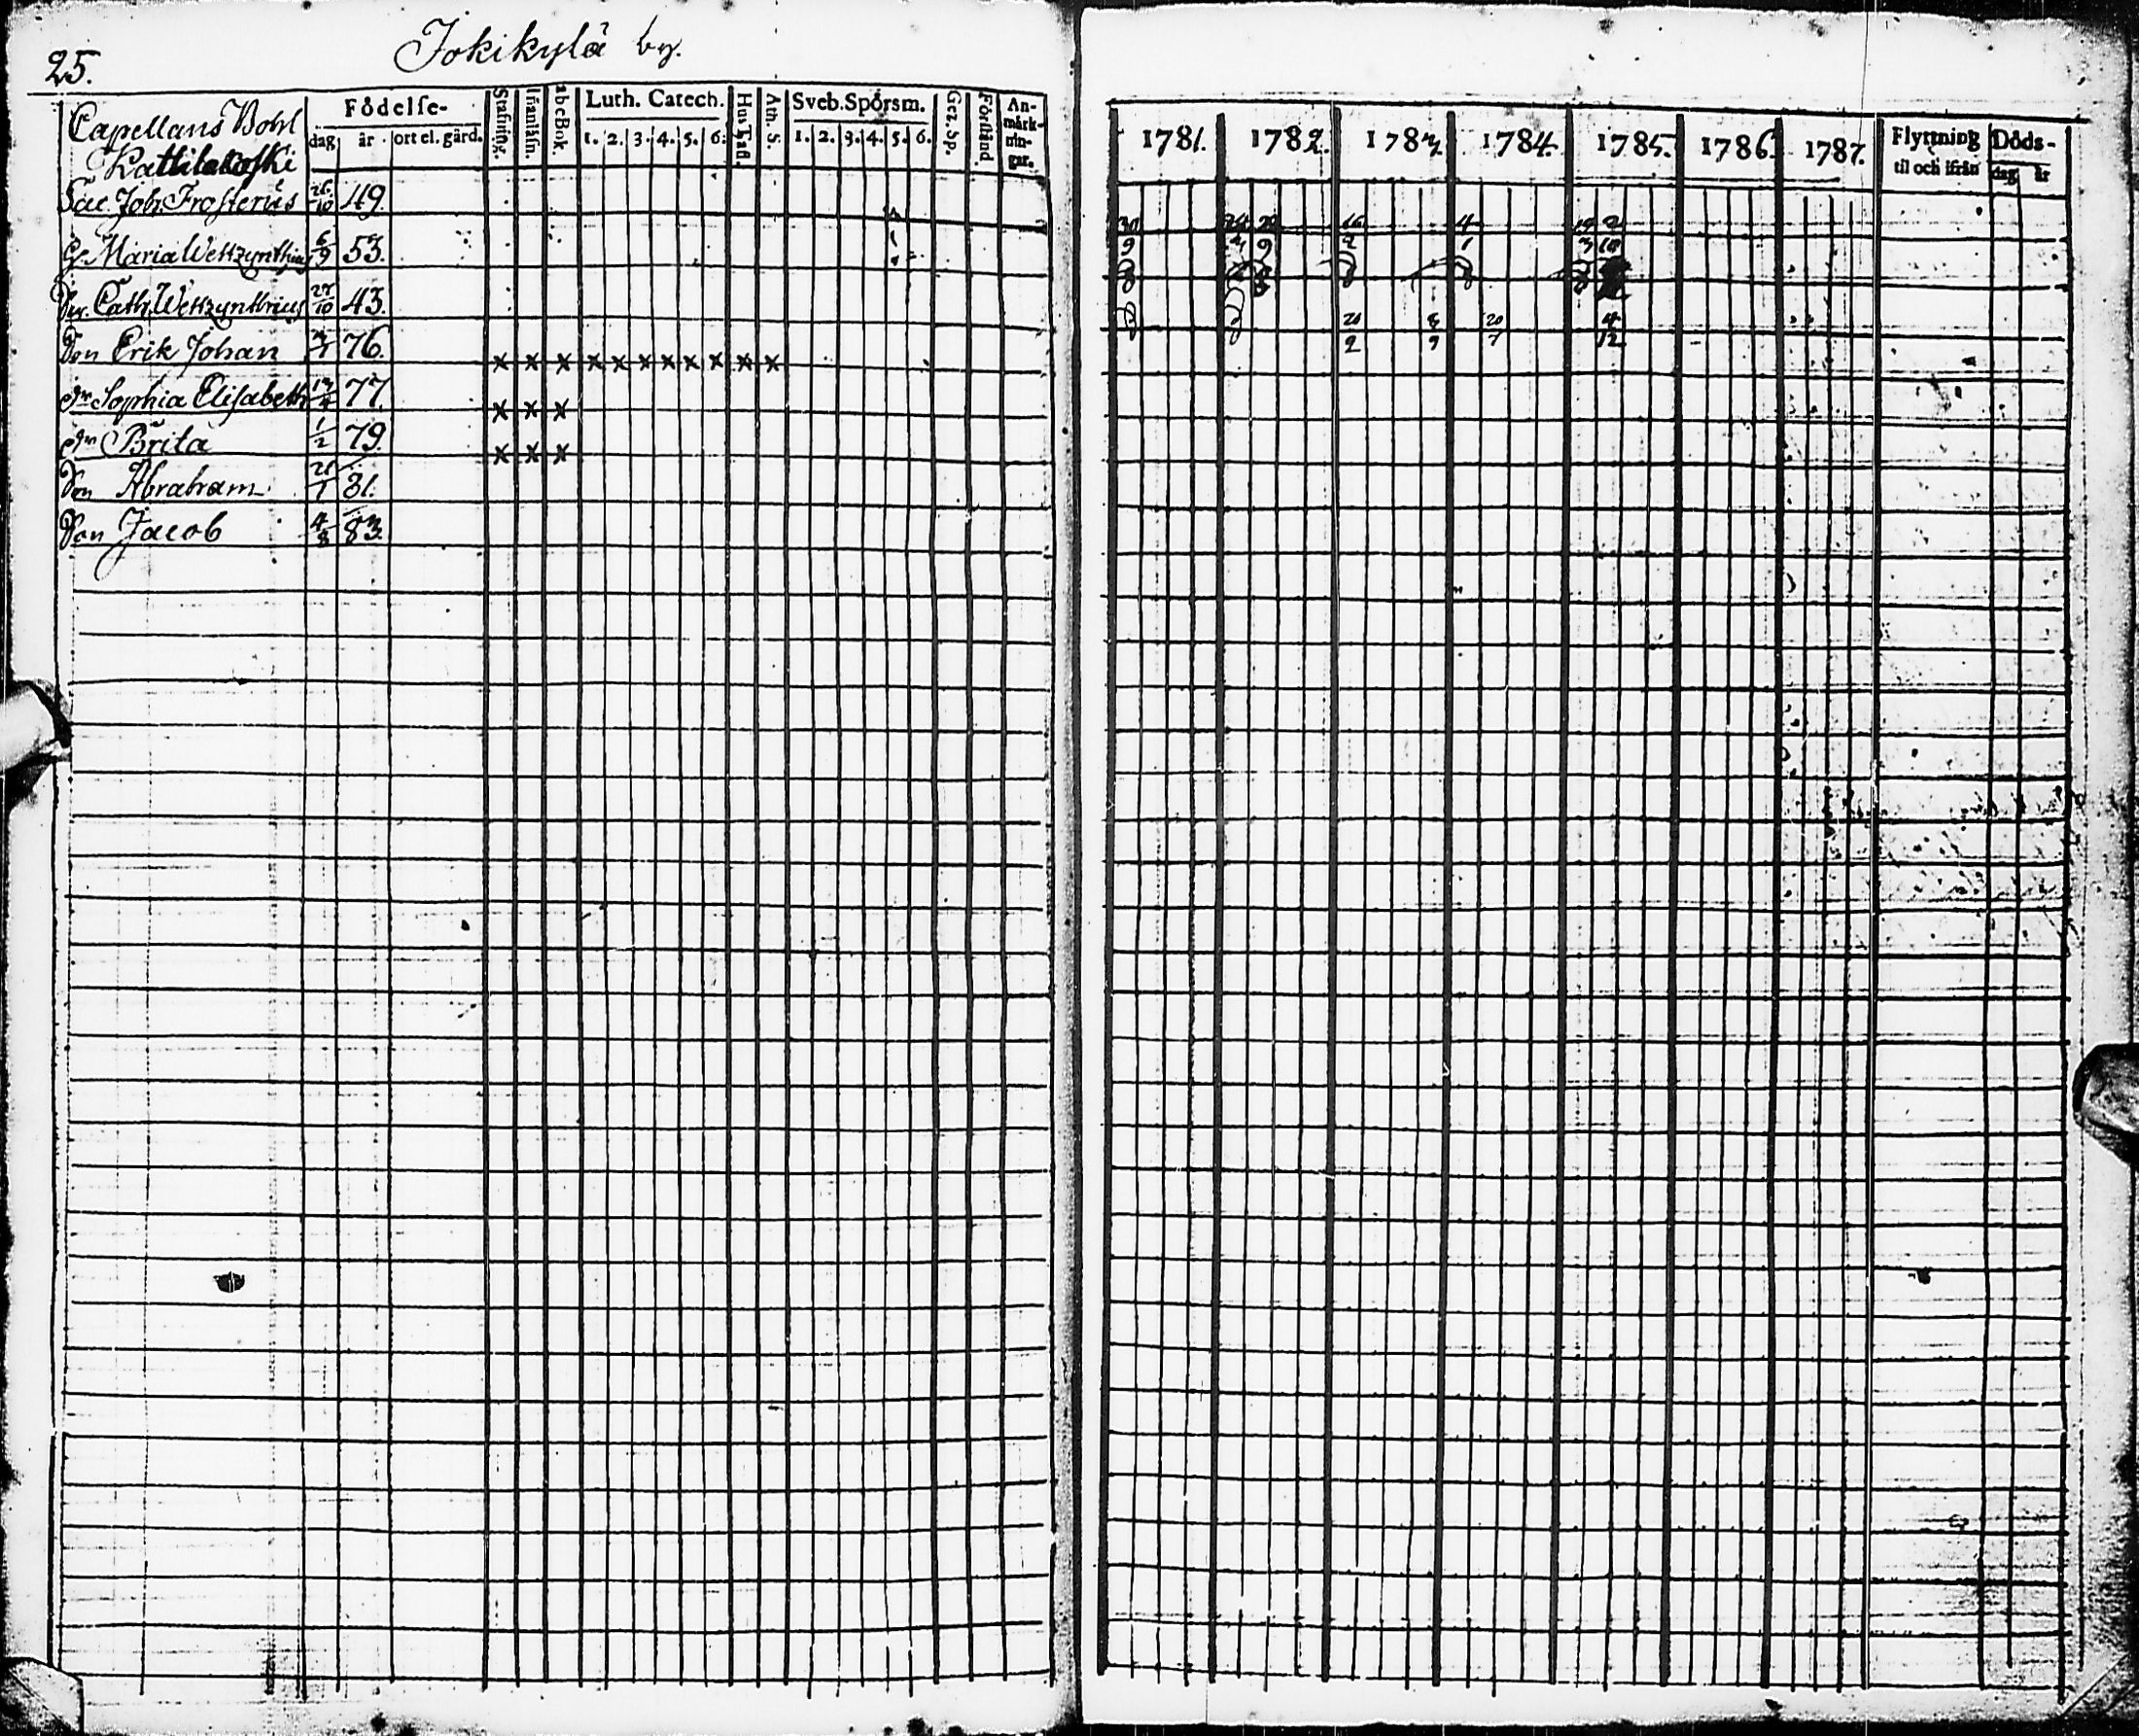 25.
Jokikylä by.
Capellans Bohl
Kattilakoski
Födelse-
dag år ort el. gård.
Stafning.
Iñanläsn.
abcBok.
Luth. Catech.
1. 2. 3. 4. 5. 6.
HusTafl.
Ath. S.
Sveb. Spörsm.
1. 2. 3. 4. 5. 6.
Gez. Sp.
Förstånd.
An-
märk-
nin-
gar.
1781. 1782. 1783 1784. 1785. 1786. 1787.
Flyttning
til och ifrån
Döds-
dag år
Sac. Joh. Frosterus 26/10 49.
H. Maria Wettzynthius 6/9 53.
Cath. Wettzynthius 27/10 43.
Son Erik Johan 76. x x x x x x x x x x x
dr Sophia Elisabeth 77. x x x
dr Brita 1/2 79. x x x
Son Abraham 21/1 81.
Son Jacob 4/8 83.
30 24 29 16 4 19 2
9 9 2 1 3 10
20 8 20 4
2 9 7 12